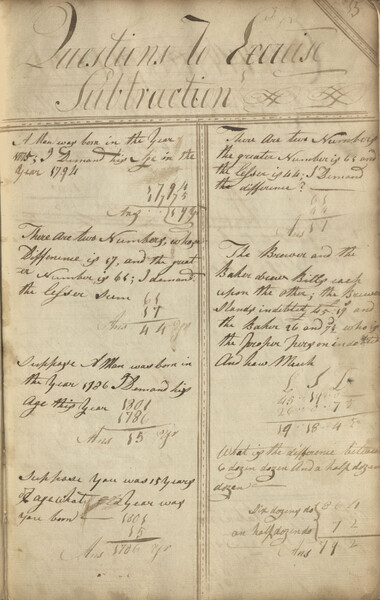 Questions To Exercise
Subtraction
A Man was born in the Year
1775; I Demand his Age in the
Year 1794
1794
1775
Ans 19 yo
There Are two Numbers, whose
Difference is 17, and the great
er Number is 61; I demand
the lesser
61
17
Ans 44
Suppose A Man was born in
the Year 1786 I Demand his
Age this Year 1801
1786
Ans 15 yo
Suppose you was 15 years
of age what Year was
you born 1801
15
Ans 1786 yo
There Are two Numbers
the greater Number is 61 and
the lesser is 44; I Demand
the difference?
61
44
Ans 17
The Brewer and the
Baker drew Bills each
upon the other; the Brewer
Stands indebted
the Baker 26 and 7½ who is
the proper Person indebted
And how Much
19 18
What is the difference between
6 dozen dozen And a half dozen
dozen
Six dozen do
an half dozen do 72
Ans 792